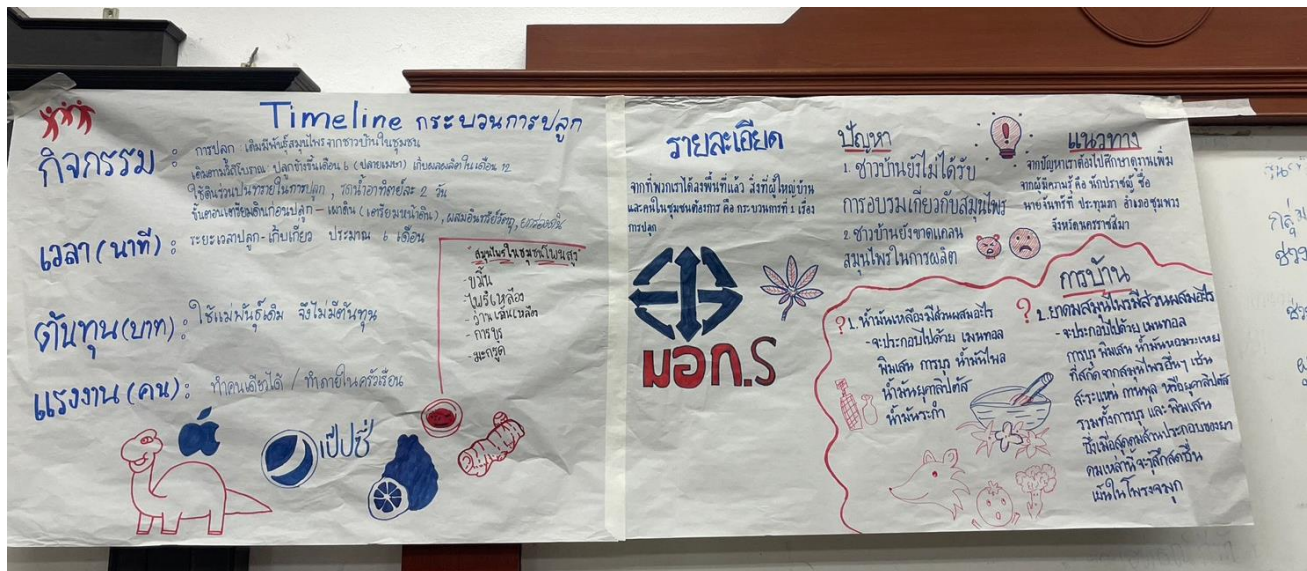 Timeline กระบวนการปลูก
กิจกรรม : การปลูก เดิมมีพันธุ์สมุนไพรจากชาวบ้านในชุมชน
เดิมตามวิถีโบราณ ปลูกข้างขึ้นเดือน 6 (ปลายเมษา) เก็บผลผลิตในเดือน 12
ใช้ดินร่วนปนทรายในการปลูก , รดน้ำอาทิตย์ละ 2 วัน
ขั้นตอนเตรียมดินก่อนปลูก – เผาดิน (เตรียมหน้าดิน) , ผสมอินทรีย์วัตถุ , ยกร่องดิน
เวลา (นาที) : ระยะเวลาปลูก-เก็บเกี่ยว ประมาณ 6 เดือน
ต้นทุน (บาท) : ใช้แม่พันธุ์เดิม จึงไม่มีต้นทุน
แรงงาน (คน) : ทำคนเดียวได้ / ทำภายในครัวเรือน
สมุนไพรในชุมชนโพนสูง
-ขมิ้น
-ไพรเหลือง
-ว่าน
- การบูร
-มะกรูด
เป๊ปซี่
รายละเอียด
จากที่พวกเราได้ลงพื้นที่แล้ว สิ่งที่ผู้ใหญ่บ้าน
และคนในชุมชนต้องการ คือ กระบวนการที่ 1 เรื่อง
การปลูก
มอก.ร
ปัญหา
1. ชาวบ้านยังไม่ได้รับ
การอบรมเกี่ยวกับสมุนไพร
2. ชาวบ้านยังขาดแคลน
สมุนไพรในการผลิต
แนวทาง
จากปัญหาเราต้องไปศึกษาดูงานเพิ่ม
จากผู้มีความรู้ คือ นักปราชญ์ ชื่อ
นายจันทร์ที ประทุมภา อำเภอชุมพวง
จังหวัดนครราชสีมา
การบ้าน
? 1. น้ำมันเหลืองมีส่วนผสมอะไร
- จะประกอบไปด้วย เมนทอล
พิมเสน การบูร น้ำมันไพล
น้ำมันยูคาลิปตัส
น้ำมันระกำ
? 2. ยาดมสมุนไพรมีส่วนผสมอะไร
-จะประกอบไปด้วย เมนทอล
การบูร พิมเสน น้ำมันหอมระเหย
ที่สกัดจากสมุนไพรอื่นๆ เช่น
สะระแหน่ กานพลู หรือยูคาลิปตัส
รวมทั้งการบูร และ พิมเสน
ซึ่งเมื่อสูดดมส่วนประกอบของยา
ดมเหล่านี้จะรู้สึกสดชื่น
เย็นในโพรงจมูก